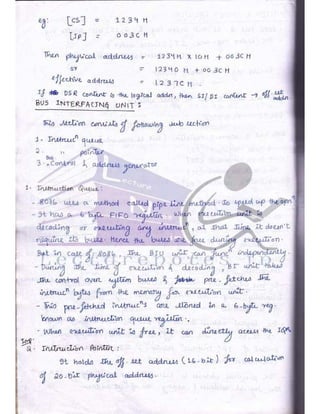 eg: [CS] = 1234 H
[IP] = 003C H
Then physical address = 1234H X 10H + 003CH
or = 12340 H + 003C H
effective address = 1237C H.
If DSR content is the logical addn, then SI/DI content → off-set addn
BUS INTERFACING UNIT :
This section consists of following sub section
1- Instrucⁿ queue
2- " pointer
3- Bus Control & address generator
1- Instruction Queue :
- 8086 uses a method called pipe line method to speed up the opⁿ
- It has a 6 byte FIFO register. When execution unit is
decoding or executing any instrucⁿ, at that time it doesn't
require its buses. Hence the buses are free during execution.
But in case of 8086, the BIU unit can funcⁿ independently.
- During the time of execution & decoding, BI unit takes
the control over system buses & pre-fetches the
instrucⁿ bytes from the memory for execution unit.
- This pre-fetched instrucⁿs are stored in a 6-byte reg.
known as instruction queue register.
- When execution unit is free, it can directly access the IQR
2- Instruction Pointer :
It holds the off-set address (16-bit) for calculation
of 20-bit physical address.